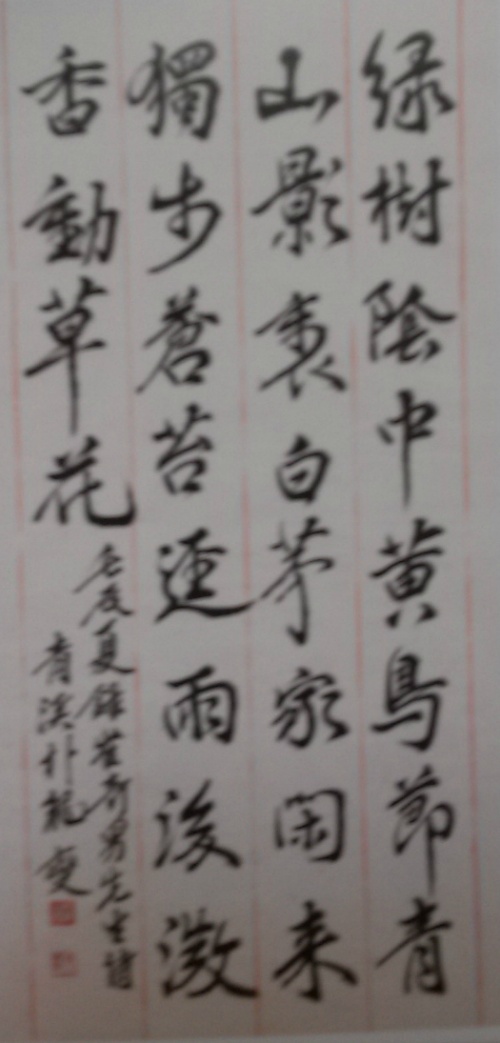 緑樹陰中黄鳥節青
山影裏白茅家閑来
獨步蒼苔逕雨後微
香動草花
壬辰夏錄崔奇男先生詩
青溪朴龍